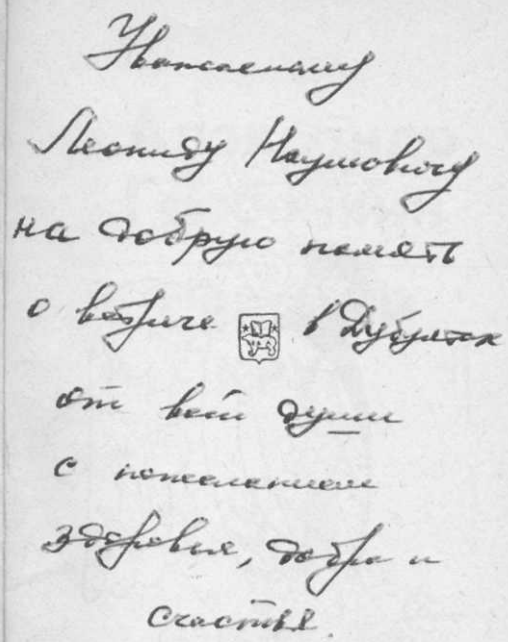 Уважаемому
Леониду Наумовичу
на добрую память
о встрече в Дубултах
от всей души
с пожеланием
здоровья, добра и
счастья.